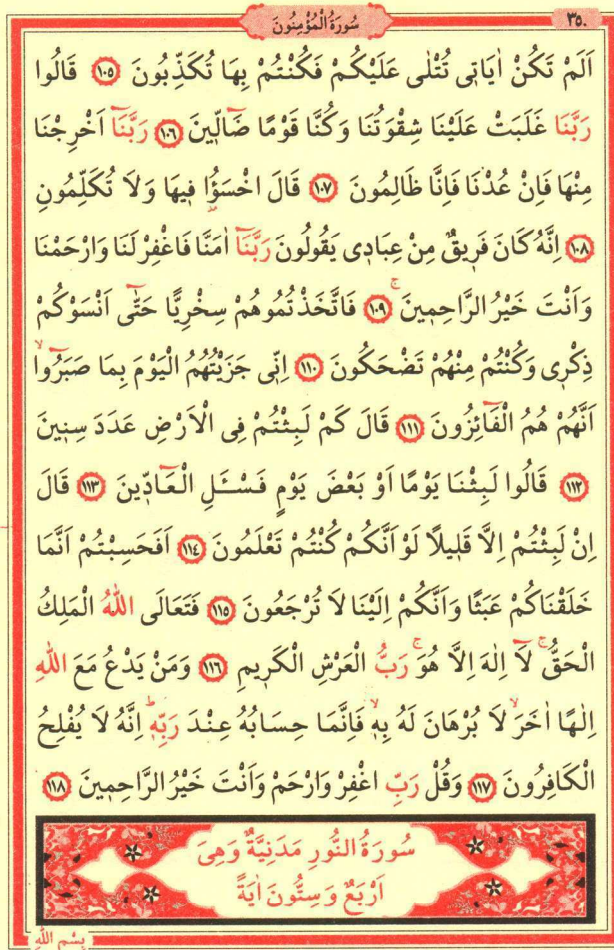 سُورَةُ الْمُؤْمِنُونَ
٣٥٠
اَلَمْ تَكُنْ اٰيَاتٖى تُتْلٰى عَلَيْكُمْ فَكُنْتُمْ بِهَا تُكَذِّبُونَ ﴿١٠٥﴾ قَالُوا
رَبَّنَا غَلَبَتْ عَلَيْنَا شِقْوَتُنَا وَكُنَّا قَوْمًا ضَٓالّٖينَ ﴿١٠٦﴾ رَبَّنَٓا اَخْرِجْنَا
مِنْهَا فَاِنْ عُدْنَا فَاِنَّا ظَالِمُونَ ﴿١٠٧﴾ قَالَ اخْسَؤُ۫ا فٖيهَا وَلَا تُكَلِّمُونِ
﴿١٠٨﴾ اِنَّهُ كَانَ فَرٖيقٌ مِنْ عِبَادٖى يَقُولُونَ رَبَّنَٓا اٰمَنَّا فَاغْفِرْ لَنَا وَارْحَمْنَا
وَاَنْتَ خَيْرُ الرَّاحِمٖينَۚ ﴿١٠٩﴾ فَاتَّخَذْتُمُوهُمْ سِخْرِيًّا حَتّٰٓى اَنْسَوْكُمْ
ذِكْرٖى وَكُنْتُمْ مِنْهُمْ تَضْحَكُونَ ﴿١١٠﴾ اِنّٖى جَزَيْتُهُمُ الْيَوْمَ بِمَا صَبَرُٓواۙ
اَنَّهُمْ هُمُ الْفَٓائِزُونَ ﴿١١١﴾ قَالَ كَمْ لَبِثْتُمْ فِى الْاَرْضِ عَدَدَ سِنٖينَ
﴿١١٢﴾ قَالُوا لَبِثْنَا يَوْمًا اَوْ بَعْضَ يَوْمٍ فَسْـَٔلِ الْعَٓادّٖينَ ﴿١١٣﴾ قَالَ
اِنْ لَبِثْتُمْ اِلَّا قَلٖيلًا لَوْ اَنَّكُمْ كُنْتُمْ تَعْلَمُونَ ﴿١١٤﴾ اَفَحَسِبْتُمْ اَنَّمَا
خَلَقْنَاكُمْ عَبَثًا وَاَنَّكُمْ اِلَيْنَا لَا تُرْجَعُونَ ﴿١١٥﴾ فَتَعَالَى اللّٰهُ الْمَلِكُ
الْحَقُّۚ لَٓا اِلٰهَ اِلَّا هُوَۚ رَبُّ الْعَرْشِ الْكَرٖيمِ ﴿١١٦﴾ وَمَنْ يَدْعُ مَعَ اللّٰهِ
اِلٰهًا اٰخَرَۙ لَا بُرْهَانَ لَهُ بِهٖۙ فَاِنَّمَا حِسَابُهُ عِنْدَ رَبِّهٖؕ اِنَّهُ لَا يُفْلِحُ
الْكَافِرُونَ ﴿١١٧﴾ وَقُلْ رَبِّ اغْفِرْ وَارْحَمْ وَاَنْتَ خَيْرُ الرَّاحِمٖينَ ﴿١١٨﴾
سُورَةُ النُّورِ مَدَنِيَّةٌ وَهِىَ
اَرْبَعٌ وَسِتُّونَ اٰيَةً
بِسْمِ اللّٰهِ